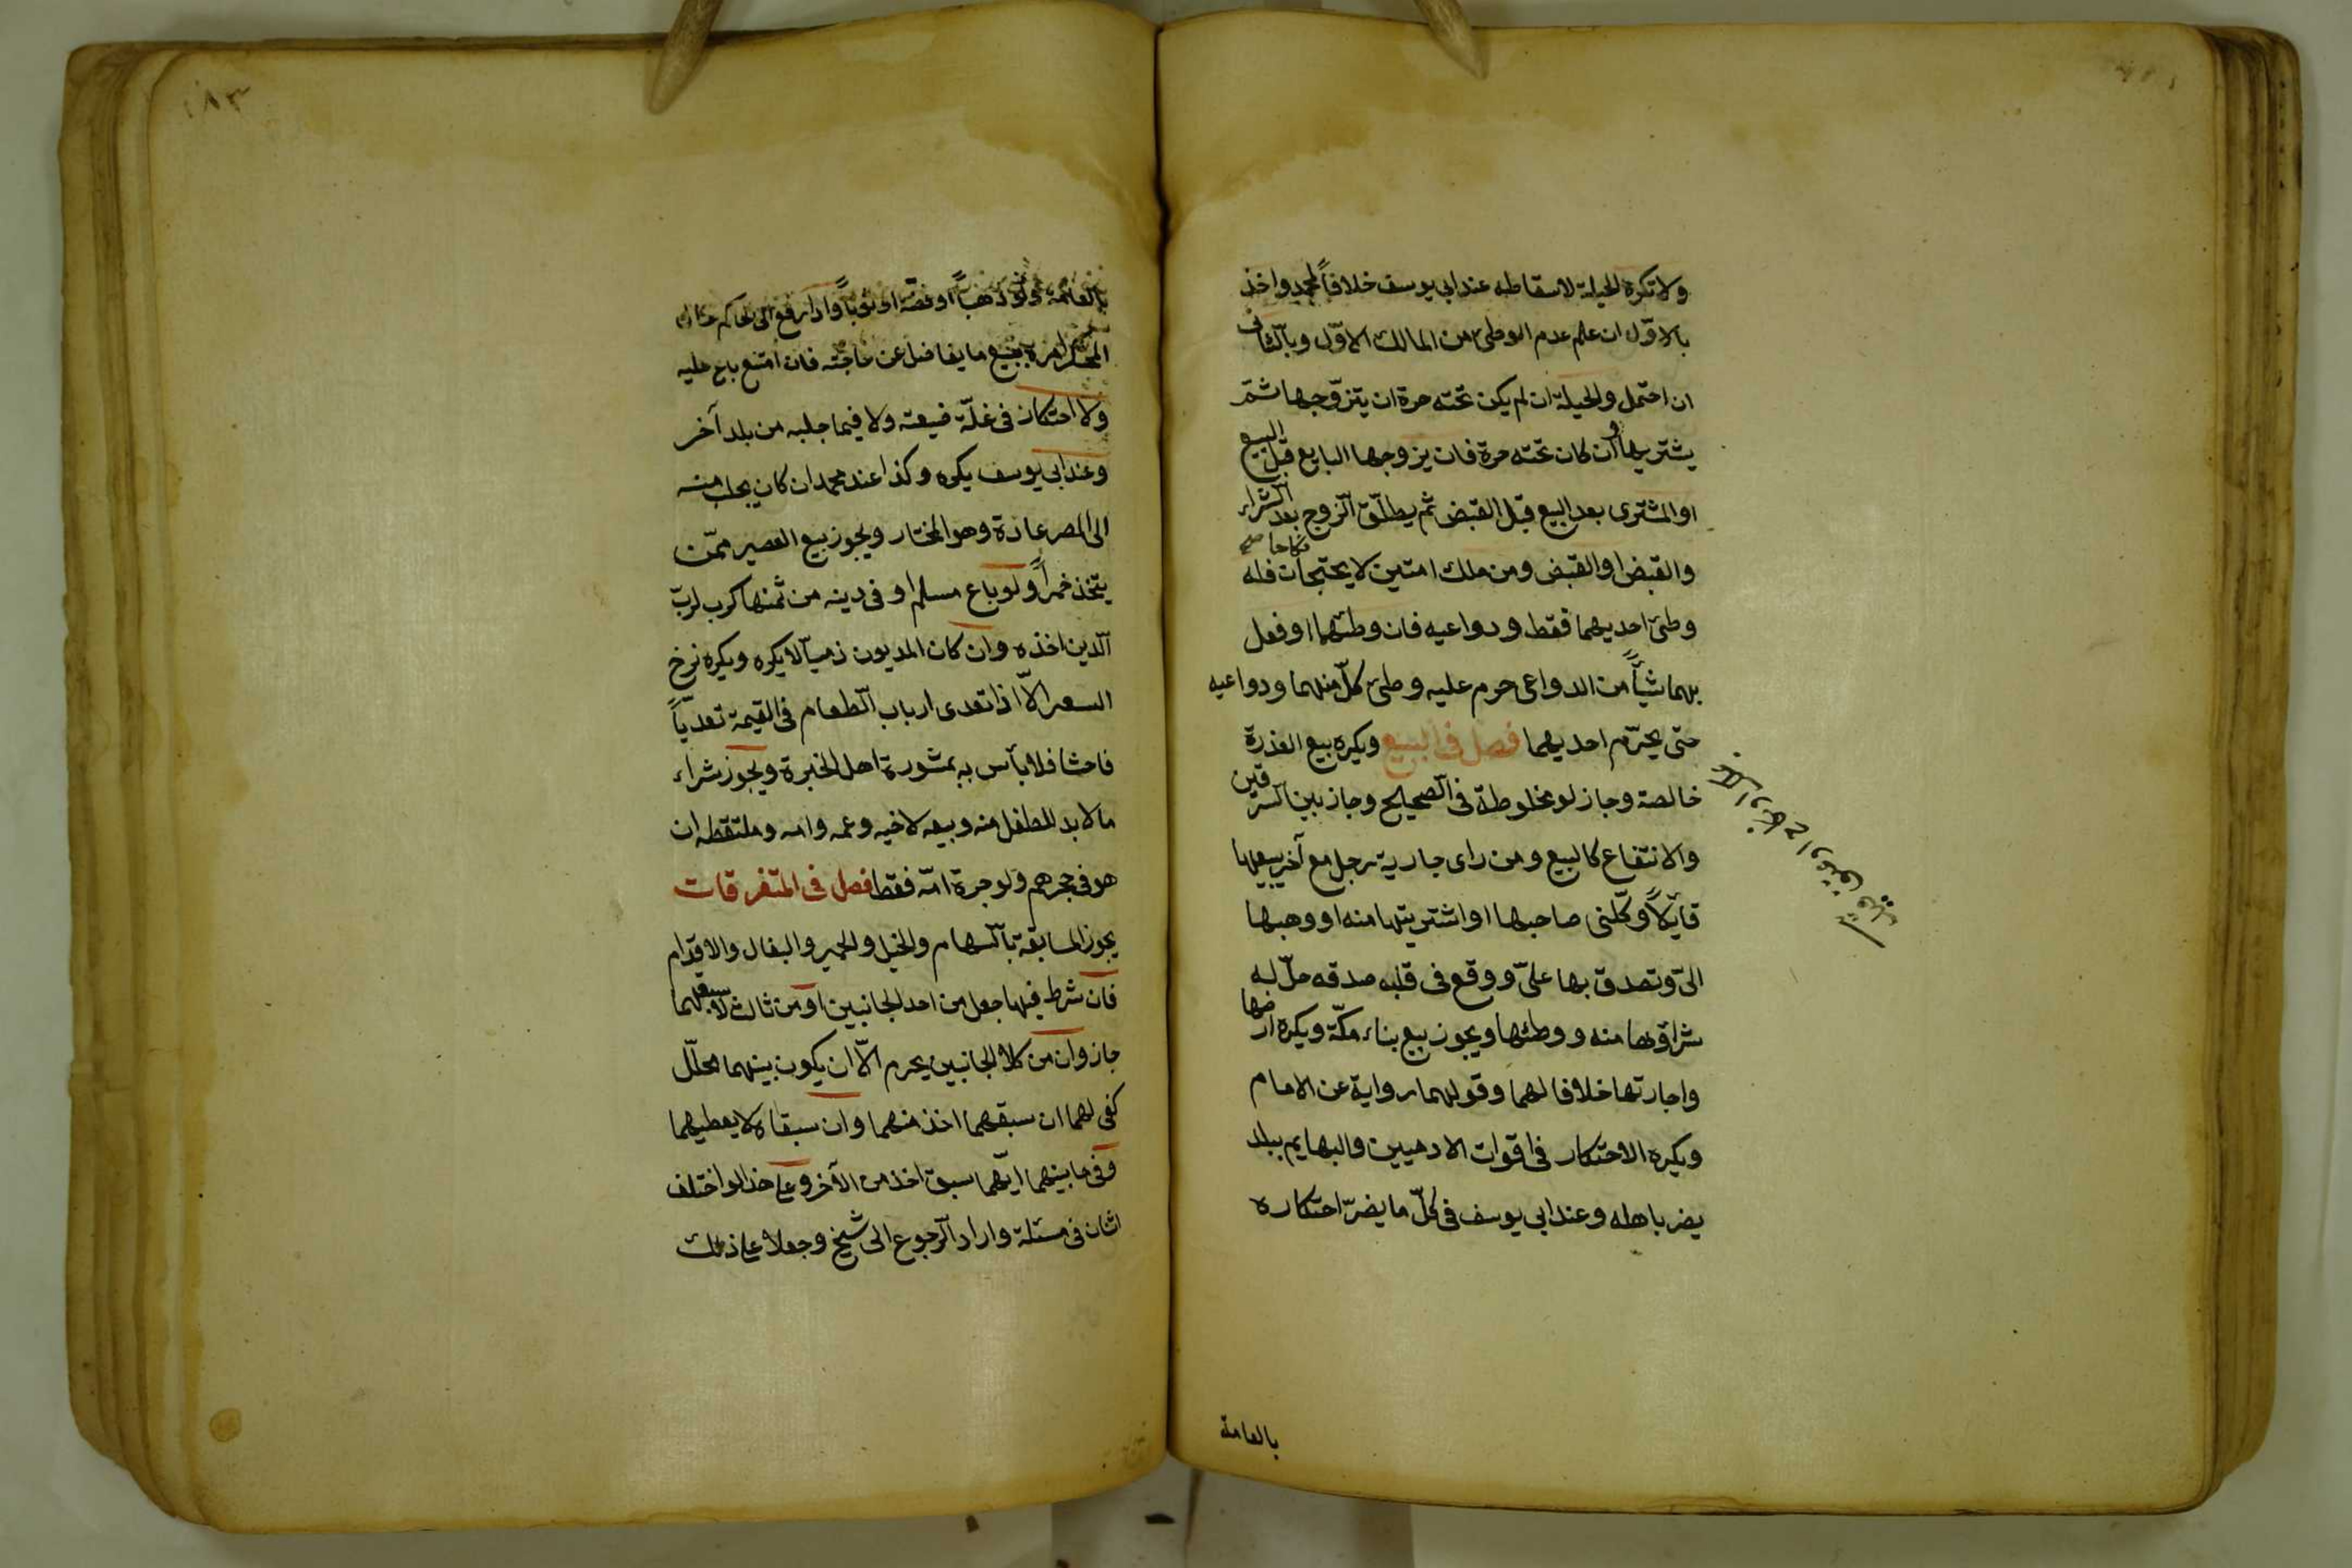 ولا تكره الحيلة لاسقاطه عند ابي يوسف خلافاً لمحمد واخذ
بالاوّل ان علم عدم الوطئ من المالك الاوّل وبالثانى
ان احتمل والحيلة ان لم يكن تحته حرة ان يتزوّجها ثمّ
يشتريها وان كان تحته حرة فان يزوجها البايع قبل البيع
او المشترى بعد البيع قبل القبض ثم يطلّق الزوج بعد الشراء
والقبض او القبض ومن ملك امتين لا يجتمعان نكاحا فله
وطئ احديهما فقط ودواعيه فان وطئهما او فعل
بهما شيأً من الدواعى حرم عليه وطئ كلّ منهما ودواعيه
حتى يحرّم احديهما فصل فى البيع ويكره بيع العذرة
خالصة وجاز لو مخلوطة فى الصحيح وجاز بيع السرقين
والانتفاع كالبيع ومن راى جارية رجل مع آخر يبيعها
قايلاً وكّلنى صاحبها او اشتريتها منه او وهبها
الىّ وتصدق بها علىّ ووقع فى قلبه صدقه حلّ له
شراؤها منه ووطئها ويجوز بيع بناء مكّة ويكره ارضها
واجارتها خلافا لهما وقولهما رواية عن الامام
ويكره الاحتكار فى اقوات الادميين والبهايم ببلد
يضر باهله وعند ابي يوسف فى كلّ ما يضرّ احتكاره
بالعامة
١٨٣
بالعامّة ولو ذهباً او فضّة او ثوباً واذا رفع الى الحاكم حال
المحتكر امره ببيع ما يفاضل عن حاجته فان امتنع باع عليه
ولا احتكار فى غلّة ضيعته ولا فيما جلبه من بلد آخر
وعند ابي يوسف يكره وكذا عند محمد ان كان يجلب منه
الى المصر عادة وهو المختار ويجوز بيع العصير ممّن
يتّخذ خمراً ولو باع مسلم او فى دينه من ثمنها كره لربّ
الدين اخذه وان كان المديون ذمياً لا يكره ويكره نرخ
السعر الاّ اذا تعدى ارباب الطعام فى القيمة تعدّياً
فاحشا فلا بأس به بمشورة اهل الخبرة ويجوز شراء
ما لا بد للطفل منه وبيعه لاخيه وعمه وامه وملتقطه ان
هو فى حجرهم ولو جرة امّه فقط فصل فى المتفرقات
يجوز المسابقة بالسهام والخيل والحمير والبغال والاقدام
فان شرط فيها جعل من احد الجانبين او من ثالث لاسبقهما
جاز وان من كلا الجانبين يحرم الاّ ان يكون بينهما محلّل
كفى لهما ان سبقهما اخذ منهما وان سبقاه لا يعطيهما
وفى ما بينهما ايّهما سبق اخذ من الآخر وعلى هذا لو اختلف
اثنان فى مسئلة واراد الرجوع الى شيخ وجعلا على ذلك